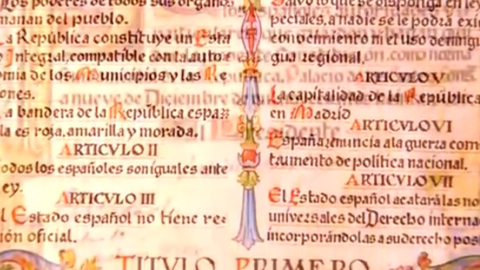 los poderes de todos sus órganos
manan del pueblo.
a República constituye un Esta
Integral, compatible con la auto
omía de los Municipios y las Re
ones.
a bandera de la República espa
la es roja, amarilla y morada.
ARTICVLO II
odos los españoles son iguales ante
ley.
ARTICVLO III
l Estado español no tiene re
ión oficial.
Salvo lo que se disponga en ley
peciales, a nadie se le podrá exi
conocimiento ni el uso de ningu
gua regional.
ARTICVLO V
La capitalidad de la Repúblic
en Madrid
ARTICVLO VI
España renuncia a la guerra com
trumento de política nacional.
ARTICVLO VII
El Estado español acatará las no
universales del Derecho interna
incorporándolas a su derecho posi
TITVLO PRIMERO